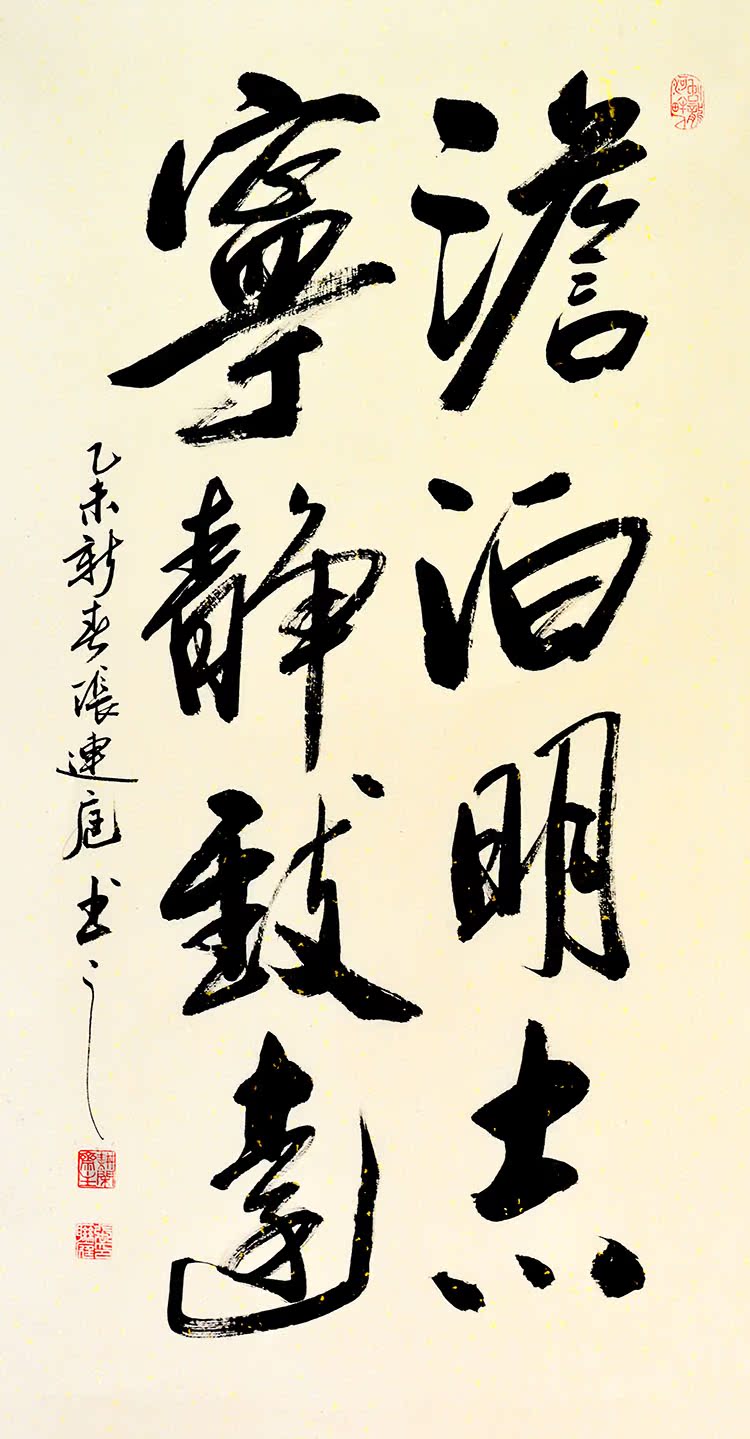 澹泊明志
寧静致遠
乙未新春張連庭书之